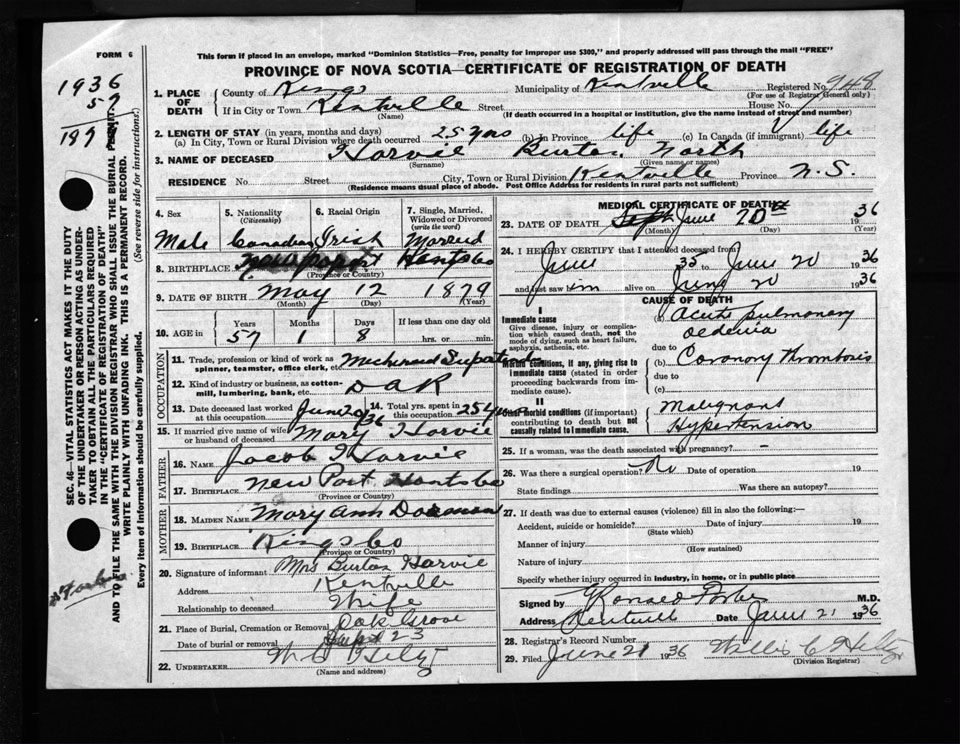 FORM 6
This form if placed in an envelope, marked "Dominion Statistics—Free, penalty for improper use $300," and properly addressed will pass through the mail "FREE"
PROVINCE OF NOVA SCOTIA—CERTIFICATE OF REGISTRATION OF DEATH
1936
57
1879
1. PLACE OF DEATH
County of Kings Municipality of Kentville Registered No. 948
(For use of Registrar General only)
If in City or Town Kentville Street House No.
(Name) (If death occurred in a hospital or institution, give the name instead of street and number)
2. LENGTH OF STAY (in years, months and days)
(a) In City, Town or Rural Division where death occurred 25 yrs (b) In Province life (c) In Canada (if immigrant) life
3. NAME OF DECEASED Harvie Burton North
(Surname) (Given name or names)
RESIDENCE No. Street City, Town or Rural Division Kentville Province N.S.
(Residence means usual place of abode. Post Office Address for residents in rural parts not sufficient)
SEC. 46—VITAL STATISTICS ACT MAKES IT THE DUTY
OF THE UNDERTAKER OR PERSON ACTING AS UNDER-
TAKER TO OBTAIN ALL THE PARTICULARS REQUIRED
IN THE "CERTIFICATE OF REGISTRATION OF DEATH"
AND TO FILE THE SAME WITH THE DIVISION REGISTRAR WHO SHALL ISSUE THE BURIAL PERMIT.
WRITE PLAINLY WITH UNFADING INK. THIS IS A PERMANENT RECORD.
Every item of information should be carefully supplied. (See reverse side for instructions.)
4. Sex 5. Nationality (Citizenship) 6. Racial Origin 7. Single, Married, Widowed or Divorced (write the word)
Male Canadian Irish Married
8. BIRTHPLACE Newport Hants Co
(Province or Country)
9. DATE OF BIRTH May 12 1879
(Month) (Day) (Year)
10. AGE in Years Months Days If less than one day old
57 1 8 hrs. or min.
OCCUPATION
11. Trade, profession or kind of work as
spinner, teamster, office clerk, etc.
12. Kind of industry or business, as cotton-
mill, lumbering, bank, etc. DAR
13. Date deceased last worked at this occupation June 20/36 14. Total yrs. spent in this occupation 25 yrs
15. If married give name of wife or husband of deceased Mary Harvie
FATHER
16. NAME Jacob Harvie
17. BIRTHPLACE New Port Hants Co
(Province or Country)
MOTHER
18. MAIDEN NAME Mary Ann
19. BIRTHPLACE Kings Co
(Province or Country)
20. Signature of informant Mrs Burton Harvie
Address Kentville
Relationship to deceased Wife
21. Place of Burial, Cremation or Removal Oak Grove
Date of burial or removal 23
22. UNDERTAKER
(Name and address)
MEDICAL CERTIFICATE OF DEATH
23. DATE OF DEATH Sept June 20th 1936
(Month) (Day) (Year)
24. I HEREBY CERTIFY that I attended deceased from
June 35 to June 20 1936
and last saw him alive on June 20 1936
CAUSE OF DEATH
I
Immediate cause
Give disease, injury or complica-
tion which caused death, not the
mode of dying, such as heart failure,
asphyxia, asthenia, etc.
(a) Acute pulmonary
oedema
due to
Morbid conditions, if any, giving rise to
immediate cause (stated in order
proceeding backwards from im-
mediate cause).
(b) Coronary thrombosis
due to
(c)
II
Other morbid conditions (if important)
contributing to death but not
causally related to immediate cause.
Malignant
Hypertension
25. If a woman, was the death associated with pregnancy?
26. Was there a surgical operation? No Date of operation 19
State findings Was there an autopsy?
27. If death was due to external causes (violence) fill in also the following:—
Accident, suicide or homicide? Date of injury 19
(State which)
Manner of injury
(How sustained)
Nature of injury
Specify whether injury occurred in industry, in home, or in public place
Signed by Ronald Forbes M.D.
Address Kentville Date June 21 1936
28. Registrar's Record Number
29. Filed June 21 1936 Willis C
(Division Registrar)